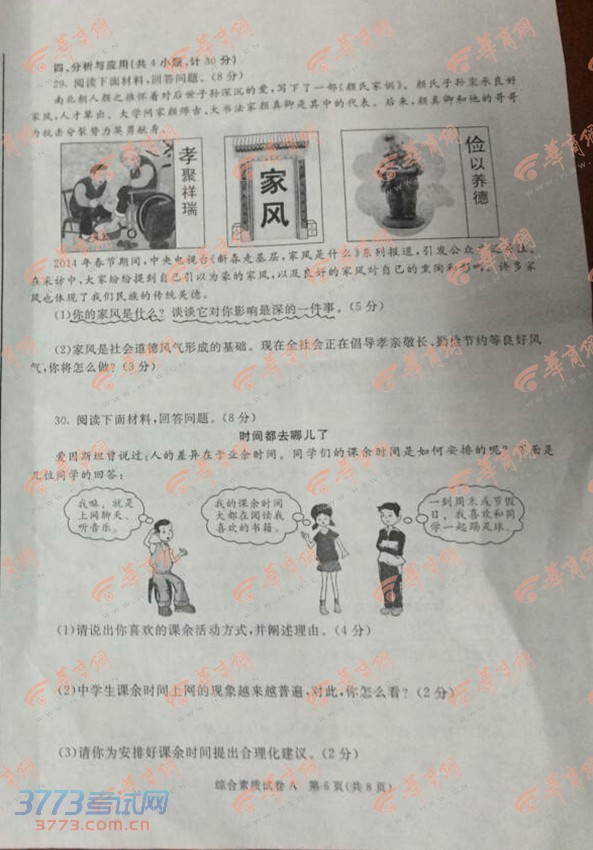 四、分析与应用(共4小题,计30分)
29. 阅读下面材料,回答问题。(8分)
南北朝人颜之推怀着对后世子孙深沉的爱,写下了一部《颜氏家训》。颜氏子孙秉承良好
家风,人才辈出。大学问家颜师古,大书法家颜真卿是其中的代表。后来,颜真卿和他的哥哥
为抗击分裂势力英勇献身。
孝聚祥瑞
家风
俭以养德
2014年春节期间,中央电视台《新春走基层,家风是什么》系列报道,引发公众
在采访中,大家纷纷提到自己引以为豪的家风,以及良好的家风对自己的熏陶和影响。许多家
风也体现了我们民族的传统美德。
(1)你的家风是什么?谈谈它对你影响最深的一件事。(5分)
(2)家风是社会道德风气形成的基础。现在全社会正在倡导孝亲敬长、勤俭节约等良好风
气,你将怎么做?(3分)
30. 阅读下面材料,回答问题。(8分)
时间都去哪儿了
爱因斯坦曾说过:人的差异在于业余时间。同学们的课余时间是如何安排的呢?下面是
几位同学的回答:
我嘛,就是
上网聊天、
听音乐。
我的课余时间
大都在阅读我
喜欢的书籍。
一到周末或节假
日,我喜欢和同
学一起踢足球。
(1)请说出你喜欢的课余活动方式,并阐述理由。(4分)
(2)中学生课余时间上网的现象越来越普遍,对此,你怎么看?(2分)
(3)请你为安排好课余时间提出合理化建议。(2分)
综合素质试卷A 第6页(共8页)
3773考试网
3773.com.cn
华育网